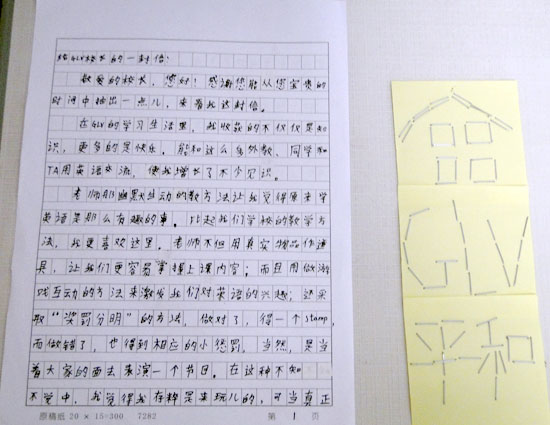 给GLV校长的一封信:
敬爱的校长,您好!感谢您能从您宝贵的
时间中抽出一点儿,来看我这封信。
在GLV的学习生活里,我收获的不仅仅是知
识,更多的是快乐。能和这么多外教、同学和
TA用英语交流,使我增长了不少见识。
老师那幽默生动的教方法让我觉得原来学
英语是那么有趣的事。比起我们学校的教学方
法,我更喜欢这里。老师不但用真实物品作道
具,让我们更容易掌握上课内容;而且用做游
戏互动的方法来激发我们对英语的兴趣;还采
取“奖罚分明”的方法,做对了,得一个stamp,
而做错了,也得到相应的小惩罚,当然,是当
着大家的面去表演一个节目。在这种不知
不觉中,我觉得我在粹是来玩儿的,可当真正
原稿纸 20 × 15=300 7282
第 1 页
GLV
乐和